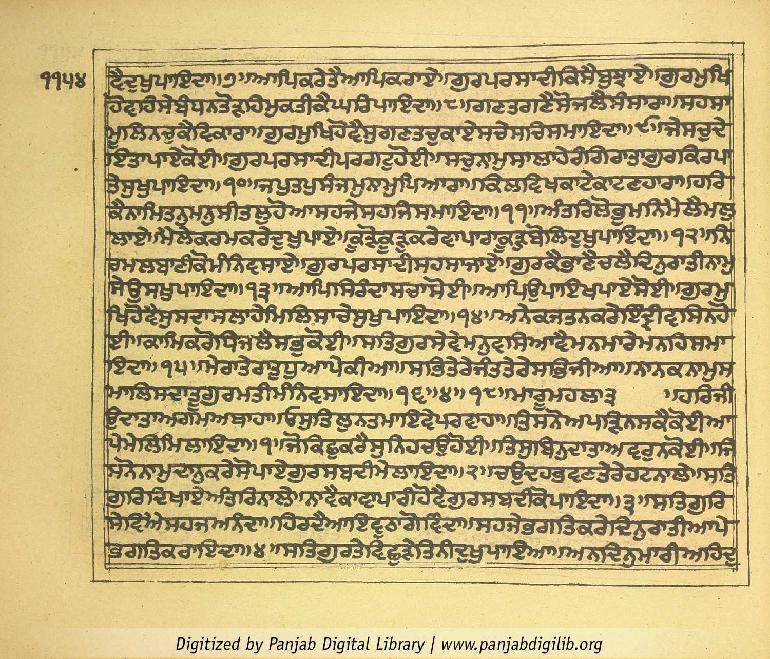 ੧੧੫੪
ਵੈਦੁਖੁਪਾਇਦਾ॥੭॥ਆਪਿਕਰੇਤੈਆਪਿਕਰਾਏ॥ਗੁਰਪਰਸਾਦੀਕਿਸੈਬੁਝਾਏ॥ਗੁਰਮੁਖਿ
ਹੋਵਹਿਸੇਬੰਧਨਤੋੜਹਿਮੁਕਤੀਕੈਘਰਿਪਾਇਦਾ॥੮॥ਗਣਤਗਣੈਸੋਜਲੈਸੰਸਾਰਾ॥ਸਹਸਾ
ਮੂਲਿਨਚੁਕੈਵਿਕਾਰਾ॥ਗੁਰਮੁਖਿਹੋਵੈਸੁਗਣਤਚੁਕਾਏਸਚੇਸਚਿਸਮਾਇਦਾ॥੯॥ਜੇਸਚੁਦੇ
ਇਤਾਪਾਏਕੋਈ॥ਗੁਰਪਰਸਾਦੀਪਰਗਟੁਹੋਈ॥ਸਚੁਨਾਮੁਸਾਲਾਹੇਰੰਗਿਰਾਤਾਗੁਰਕਿਰਪਾ
ਤੇਸੁਖੁਪਾਇਦਾ॥੧੦॥ਜਪੁਤਪੁਸੰਜਮੁਨਾਮੁਪਿਆਰਾ॥ਕਿਲਵਿਖਕਾਟੇਕਾਟਣਹਾਰਾ॥ਹਰਿ
ਕੈਨਾਮਿਤਨੁਮਨੁਸੀਤਲੁਹੋਆਸਹਜੇਸਹਜਿਸਮਾਇਦਾ॥੧੧॥ਅੰਤਰਿਲੋਭੁਮਨਿਮੈਲੈਮਲੁ
ਲਾਏ॥ਮੈਲੇਕਰਮਕਰੇਦੁਖੁਪਾਏ॥ਕੂੜੋਕੂੜੁਕਰੇਵਾਪਾਰਾਕੂੜੁਬੋਲਿਦੁਖੁਪਾਇਦਾ॥੧੨॥ਨਿ
ਰਮਲਬਾਣੀਕੋਮੰਨਿਵਸਾਏ॥ਗੁਰਪਰਸਾਦੀਸਹਸਾਜਾਏ॥ਗੁਰਕੈਭਾਣੈਚਲੈਦਿਨੁਰਾਤੀਨਾਮੁ
ਚੇਤਿਸੁਖੁਪਾਇਦਾ॥੧੩॥ਆਪਿਸਿਰੰਦਾਸਚਾਸੋਈ॥ਆਪਿਉਪਾਇਖਪਾਏਸੋਈ॥ਗੁਰਮੁ
ਖਿਹੋਵੈਸੁਸਦਾਸਲਾਹੇਮਿਲਿਸਾਚੇਸੁਖੁਪਾਇਦਾ॥੧੪॥ਅਨੇਕਜਤਨਕਰੇਇੰਦ੍ਰੀਵਸਿਨਹੋ
ਈ॥ਕਾਮਿਕਰੋਧਿਜਲੈਸਭੁਕੋਈ॥ਸਤਿਗੁਰਸੇਵੇਮਨੁਵਸਿਆਵੈਮਨਮਾਰੇਮਨਹਿਸਮਾ
ਇਦਾ॥੧੫॥ਮੇਰਾਤੇਰਾਤੁਧੁਆਪੇਕੀਆ॥ਸਭਿਤੇਰੇਜੰਤਤੇਰੇਸਭਿਜੀਆ॥ਨਾਨਕਨਾਮੁਸ
ਮਾਲਿਸਦਾਤੂਗੁਰਮਤੀਮੰਨਿਵਸਾਇਦਾ॥੧੬॥੪॥੧੮॥ਮਾਰੂਮਹਲਾ੩ ॥ਹਰਿਜੀ
ਉਦਾਤਾਅਗਮਅਥਾਹਾ॥ਓਸੁਤਿਲੁਨਤਮਾਇਵੇਪਰਵਾਹਾ॥ਤਿਸਨੋਅਪੜਿਨਸਕੈਕੋਈਆ
ਪੇਮੇਲਿਮਿਲਾਇਦਾ॥੧॥ਜੋਕਿਛੁਕਰੈਸੁਨਿਹਚਉਹੋਈ॥ਤਿਸੁਬਿਨੁਦਾਤਾਅਵਰੁਨਕੋਈ॥ਜਿ
ਸਨੋਨਾਮੁਦਾਨੁਕਰੇਸੋਪਾਏਗੁਰਸਬਦੀਮੇਲਾਇਦਾ॥੨॥ਚਉਦਹਭਵਣਤੇਰੇਹਟਨਾਲੇ॥ਸਤਿ
ਗੁਰਿਦਿਖਾਏਅੰਤਰਿਨਾਲੇ॥ਨਾਵੈਕਾਵਾਪਾਰੀਹੋਵੈਗੁਰਸਬਦੀਕੋਪਾਇਦਾ॥੩॥ਸਤਿਗੁਰਿ
ਸੇਵਿਐਸਹਜਅਨੰਦਾ॥ਹਿਰਦੈਆਇਵੁਠਾਗੋਵਿੰਦਾ॥ਸਹਜੇਭਗਤਿਕਰੇਦਿਨੁਰਾਤੀਆਪੇ
ਭਗਤਿਕਰਾਇਦਾ॥੪॥ਸਤਿਗੁਰਤੇਵਿਛੁੜੇਤਿਨੀਦੁਖੁਪਾਇਆ॥ਅਨਦਿਨੁਮਾਰੀਅਹਿਦੁ
Digitized by Panjab Digital Library | www.panjabdigilib.org